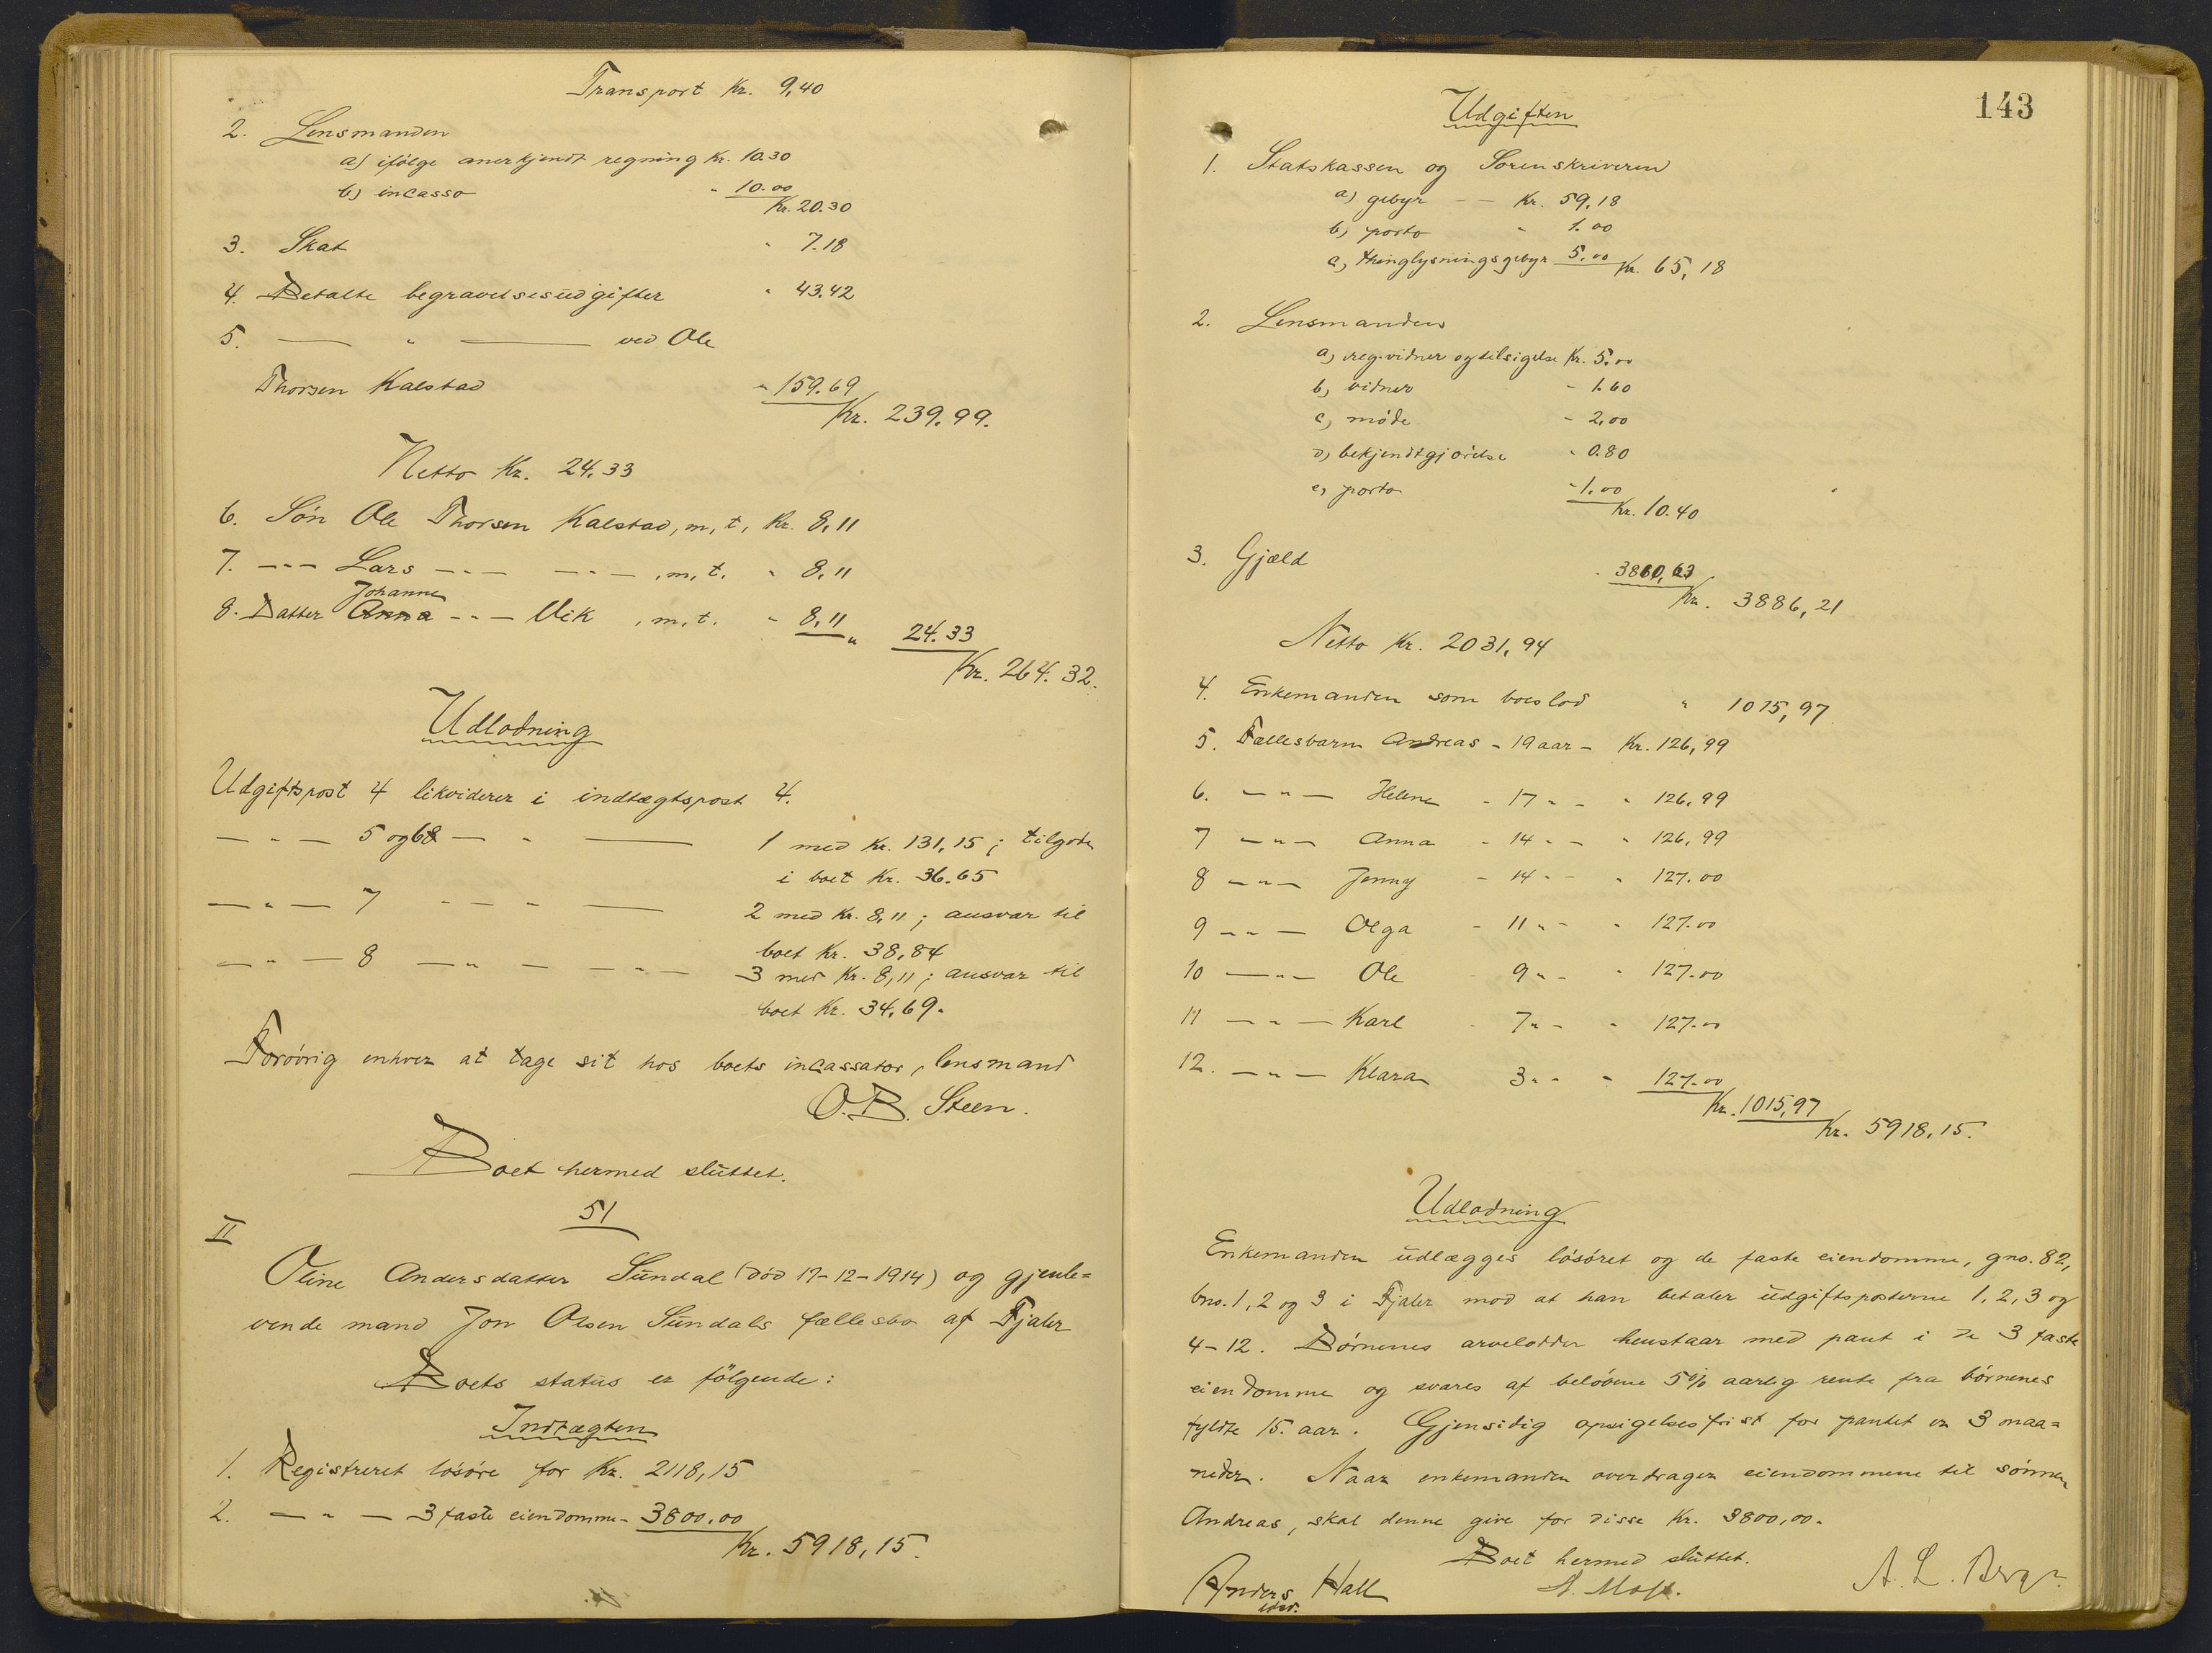 Transport Kr. 9,40
2. Lensmanden
a) ifølge anerkjendt regning Kr. 10.30
b) incasso " 10.00
Kr. 20.30
3. Skat " 7.18
4. Betalte begravelsesudgifter " 43.42
5. — " — ved Ole
Thorsen Kalstad " 159.69
Kr. 239.99.
Netto Kr. 24.33
6. Søn Ole Thorsen Kalstad, m, t, Kr. 8,11
7. -"- Lars -"- -"-, m, t. " 8,11
Johanne
8. Datter Anna -"- Vik, m, t. " 8,11 " 24.33
Kr. 264.32.
Udlodning
Udgiftspost 4 likviderer i indtægtspost 4.
-"- 5 og 6 -"- 1 med Kr. 131,15; tilgode
i boet Kr. 36.65
-"- 7 -"- 2 med Kr. 8,11; ansvar til
boet Kr. 38,84
-"- 8 -"- -"- 3 med Kr. 8,11; ansvar til
boet Kr. 34,69.
Forøvrig enhver at tage sit hos boets incassator, lensmand
O. B. Steen.
Boet hermed sluttet.
51
II
Oline Andersdatter Sundal (død 17-12-1914) og gjenle=
vende mand Jon Olsen Sundals fællesbo af Fjaler
Boets status er følgende:
Indtægten
1. Registreret løsøre for Kr. 2118,15
2. -"- 3 faste eiendomme - 3800,00
Kr. 5918,15.
143
Udgiften
1. Statskassen og Sorenskriveren
a) gebyr — Kr. 59,18
b) porto " 1.00
c) thinglysningsgebyr 5,00 Kr. 65,18
2. Lensmanden
a) reg.vidner og tilsigelse Kr. 5.00
b) vidner - 1.60
c) møde - 2,00
d) bekjendtgjørelse " 0.80
e) porto - 1,00
Kr. 10.40
3. Gjæld " 3810,63
Kr. 3886,21
Netto Kr. 2031,94
4. Enkemanden som boeslod " 1015,97
5. Fællesbarn Andreas - 19 aar - Kr. 126,99
6. -"- Helene - 17 " - " 126,99
7 -"- Anna - 14 " - " 126,99
8 -"- Jenny - 14 " - " 127.00
9 -"- Olga - 11 " - " 127.00
10 -"- Ole 9 " - " 127.00
11 -"- Karl - 7 " - " 127.00
12. -"- Klara 3 " - " 127.00
Kr. 1015,97
Kr. 5918,15.
Udlodning
Enkemanden udlægges løsøret og de faste eiendomme, gno. 82,
bno. 1, 2 og 3 i Fjaler mod at han betaler udgiftsposterne 1, 2, 3 og
4-12. Børnenes arvelodder henstaar med pant i de 3 faste
eiendomme og svares af beløbene 5% aarlig rente fra børnenes
fyldte 15. aar. Gjensidig opsigelsesfrist for pantet er 3 maa=
neder. Naar enkemanden overdrager eiendommene til sønnen
Andreas, skal denne give for disse Kr. 3800,00.
Boet hermed sluttet.
Anders Hall A. L. Berge